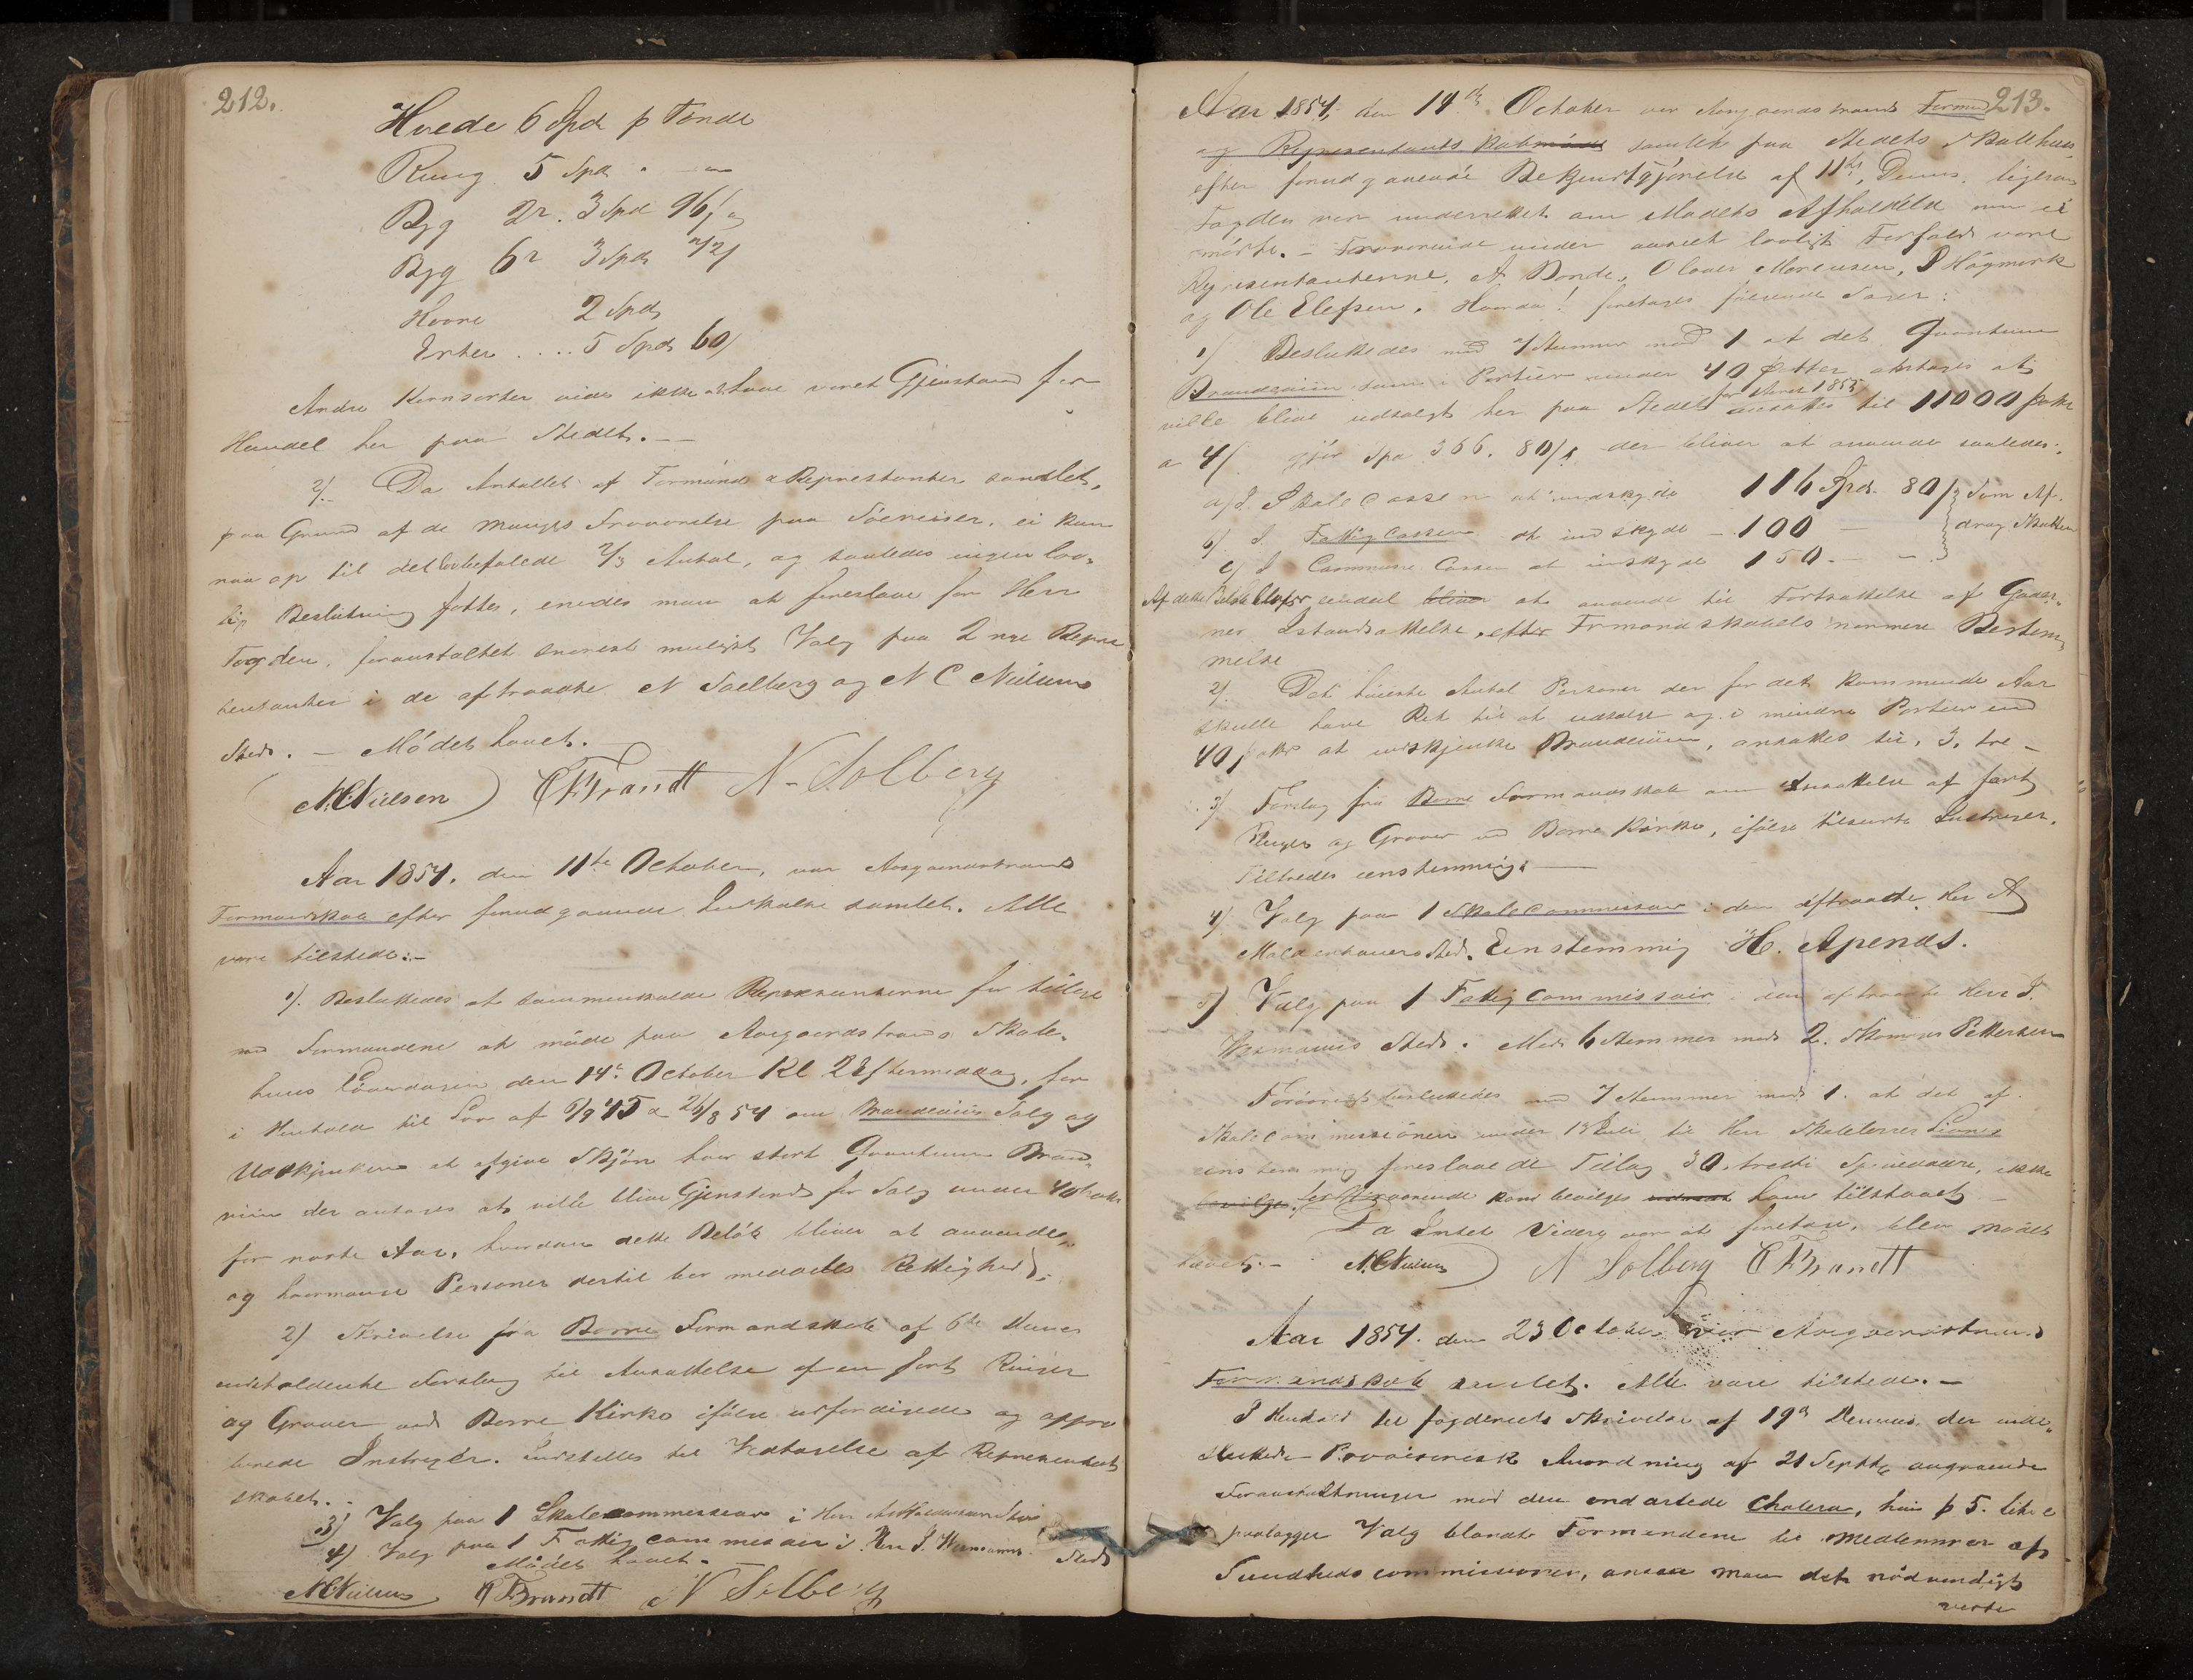 212.
Hvede 6 Spd p Tønde
Rug 5 Spd " —
Byg 2r. 3 Spd 96/
Byg 6r 3 Spd 72/
Havre 2 Spd
Erter .... 5 Spd 60/
Andre Kornsorter vides ikke at have været Gjenstand for
Handel her paa Stedet. —
2/. Da Antallet af Formænd & Repræsentanter samlet,
paa Grund af de manges Fraværelse paa Søereiser, ei kan
naa op til det lovbefalede 2/3 Antal, og saaledes ingen lov-
lig Beslutning fattes, enedes man at foreslaae for Herr
Fogden, foranstaltet snarest muligst Valg paa 2 nye Repræ
sentanter i de aftraadte N Solberg og N C Nielsens
Sted. — Mødet hævet.
N.C. Nielsen C F Brandt N. Solberg
Aar 1854. den 11te October, var Aasgaardstrands
Formandskab efter forudgaaende Indkaldelse samlet. Alle
vare tilstede: —
1/. Besluttedes at sammenkalde Repræsentanterne for tillige
med Formændene at møde paa Aasgaardstrands Skole-
huus Løverdagen den 14de October Kl 2 Eftermiddag, for
i Henhold til Lov af 6/9 45 & 26/8 54 om Brændeviins Salg og
Udskjenken at afgive Skjøn hvor stort Qvantum Brænde-
viin der antages at ville blive Gjenstand for Salg under 40 Potter
for næste Aar, hvordan dette Beløb bliver at anvende,
og hvormange Personer dertil bør meddeles Rettighed.
2/ Skrivelse fra Borre Formandskab af 6te dennes
indeholdende Forslag til Ansættelse af en fast Ringer
og Graver ved Borre Kirke ifølge udfærdigede og appro
berede Instruxer. Indstilles til Vedtagelse af Repræsentant
skabet. —
3/ Valg paa 1 Skolecommissær i Herr Sted
4/ Valg paa 1 Fattigcommissair i Herr J. Wermanns Sted
Mødet hævet.
N.C. Nielsen C F Brandt N Solberg
213.
Aar 1854, den 14de October var Aasgaardstrands Formand
og Repræsentantskab møde samlet paa Stedets Skolehuus
efter forudgaaende Bekjendtgjørelse af 11te Dennes. ligesom
Fogden var underrettet om Mødets Afholdelse men ei
mødte. — Fraværende under anmeldt lovligt Forfald vare
Repræsentanterne, A Bonde, Olaves Mørensen, P Høgmark
og Ole Elefsen. Hvorda! foretoges følgende Sager:
1/. Besluttedes med 7 Stemmer mod 1 at det Qvantum
Brændeviin som i Portier under 40 Potter antages at
ville blive udsolgt her paa Stedet for Aaret 1855 ansattes til 11000 Potter
a 4/. gjør Spd 366. 80/s der bliver at anvende saaledes:
a/ I Skole Cassen at indskyde 116 Spd. 80/ } Som Af-
b/ I Fattigcassen at indskyde — 100 — } drag Skatten
c/ I Commune Cassen at indskyde 150. — — }
Af dette Beløb bliver endeel bliver at anvende til Fortsættelse af Gader-
nes Istandsættelse, efter Formandskabets nærmere Bestem-
melse
2/. Det høieste Antal Personer der for det kommende Aar
skulle have Ret til at udsælge og i mindre Portier end
40 Potter at udskjenke Brændeviin, ansattes til, 3, tre —
3/ Forslag fra Borre Formandskab om Ansættelse af fast
Ringer og Graver ved Borre Kirke, ifølge tilsendte Instruxer,
Tiltredes eenstemmigt —
4/ Valg paa 1 Skolecommissair i den aftraadte Herr A
Sted. Eenstemmig H. Apenæs.
5/ Valg paa 1 Fattigcommissair i den aftraadte Herr J.
Wermanns Sted. Med 6 Stemmer mod 2. Thomas Pettersen
Forøvrigt besluttedes med 7 Stemmer mod 1. at det af
Skolecommissionen under 13 Juli til Herr Skolelærer
eenstemmig foreslaaede Tillæg 30, tretti Speciedaler, ikke
bevilges, for Nærværende kan bevilges ham tilstaaet —
Da Intet Videre var at foretage, blev mødet
hævet. — N.C. Nielsen N Solberg C F Brandt
Aar 1854. den 23 October var Aasgaardstrands
Formandskab samlet. Alle vare tilstede. —
I Henhold til Fogderiets Skrivelse af 19de Dennes, der inde-
sluttede Provisorisk Anordning af 21 Septbr angaaende
Foranstaltninger mod den ondartede Cholera, hvis § 5. litr c
paalægger Valg blandt Formændene til Medlemmer af
Sundhedscommissionen, ansaa man det nødvendigt